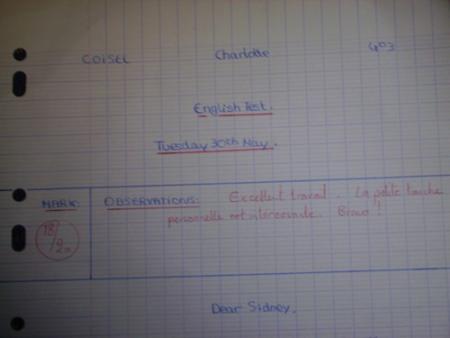 COISEL Charlotte 403
English Test.
Tuesday 30th May.
MARK: OBSERVATIONS: Excellent travail. La petite touche
18/20 personnelle est intéressante. Bravo !
Dear Sidney,